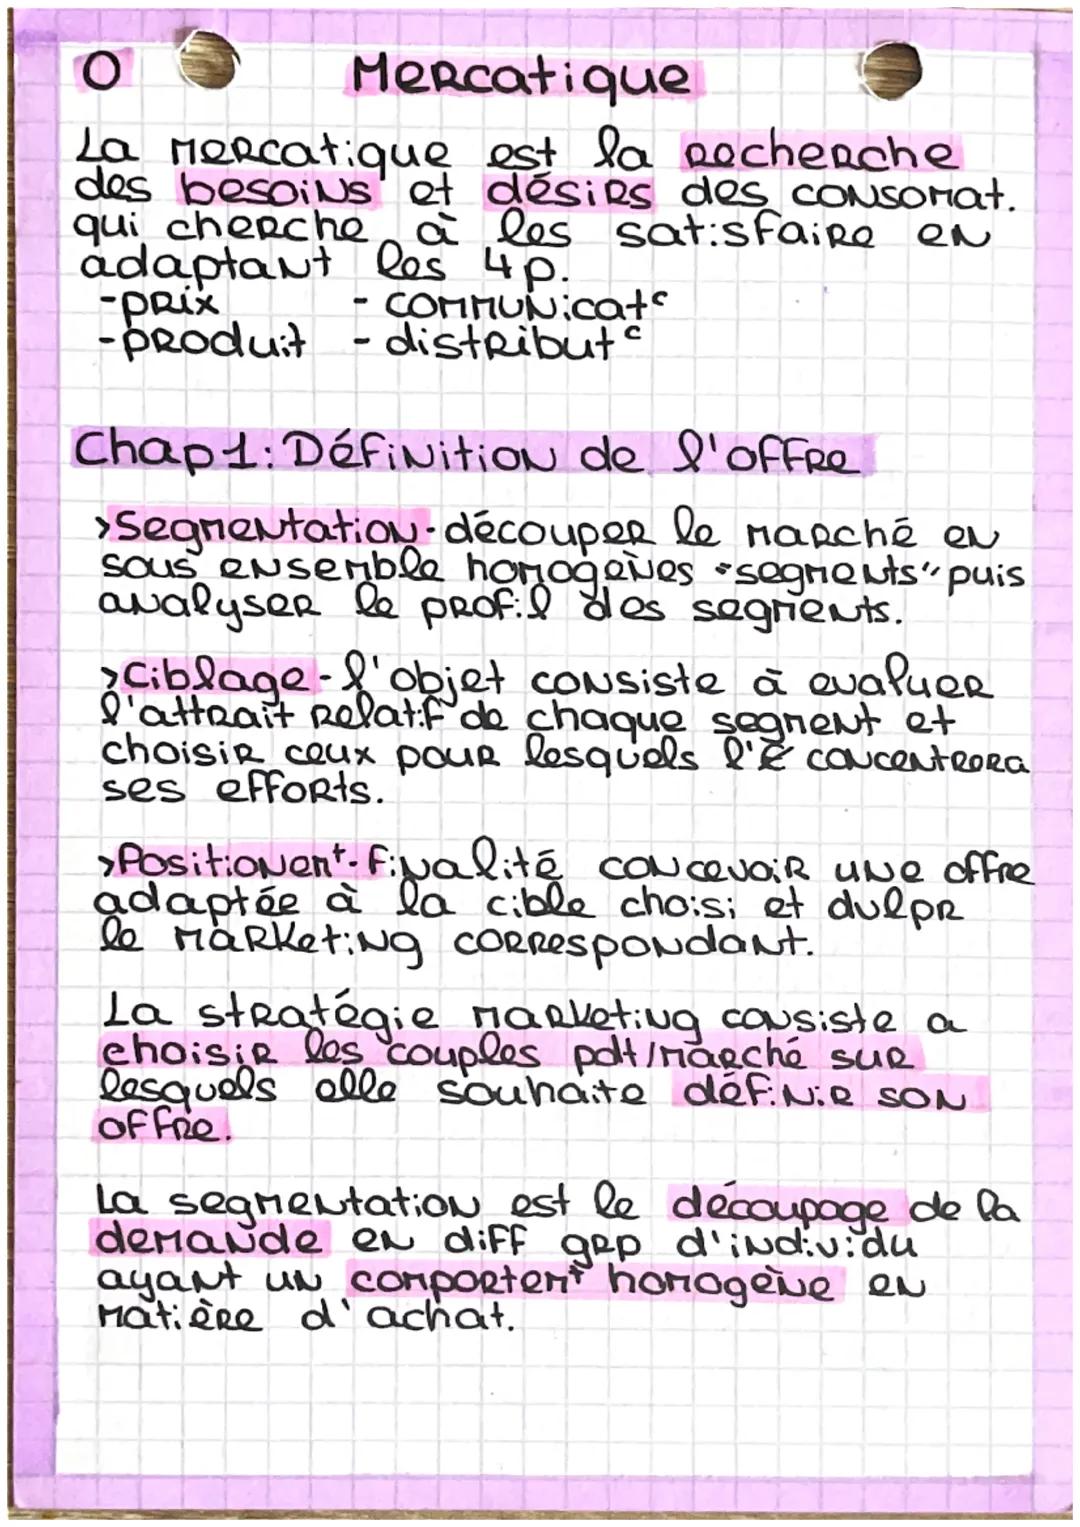 O Mercatique
La mercatique est la recherche
des besoins et désirs des consomat.
qui cherche à les satisfaire en
adaptant les 4p.
-prix - communicatᶜ
-produit - distributᶜ
Chap1: Définition de l'offre
>Segmentation - découper le marché en
sous ensemble homogènes "segments" puis
analyser le profil des segments.
>Ciblage - l'objet consiste à evaluer
l'attrait relatif de chaque segment et
choisir ceux pour lesquels l'E concentrera
ses efforts.
>Positionemt - finalité concevoir une offre
adaptée à la cible choisi et dvlpr
le marketing correspondant.
La stratégie marketing consiste a
choisir les couples pdt/marché sur
lesquels elle souhaite définir son
offre.
La segmentation est le découpage de la
demande en diff grp d'individu
ayant un comportemt homogène en
matière d'achat.